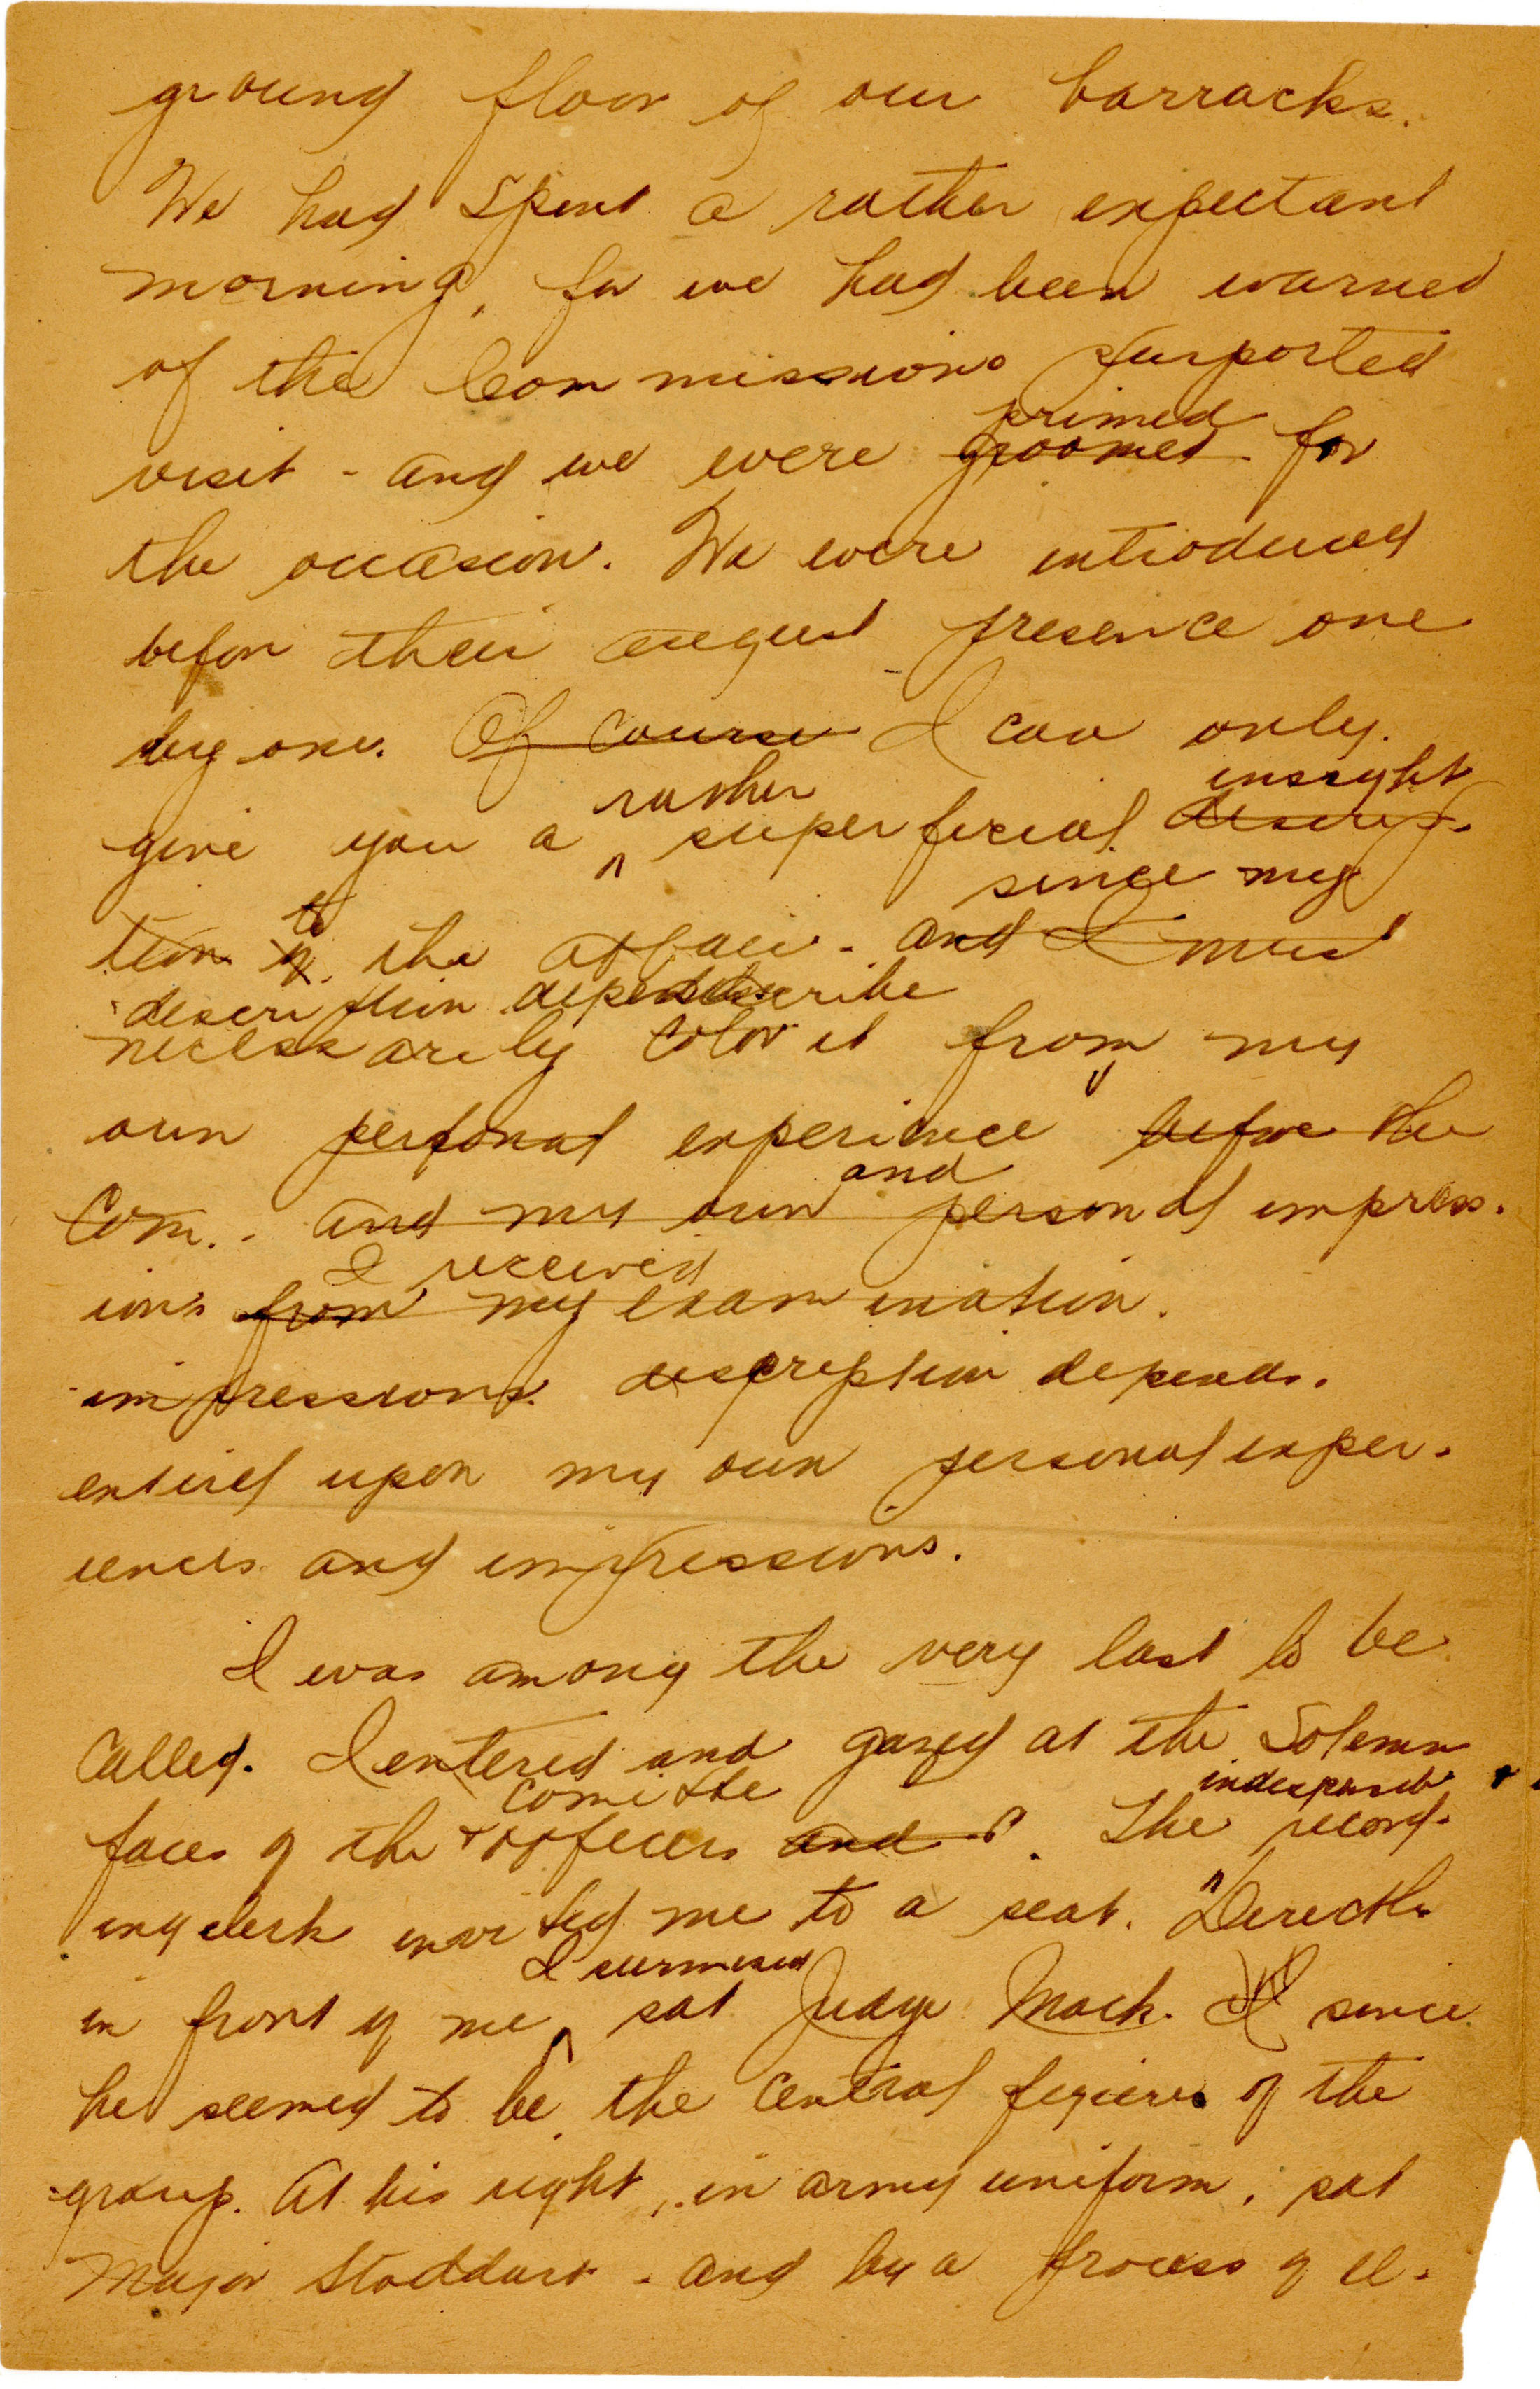 ground floor of our barracks.
We had spent a rather expectant
morning, for we had been warned
of the Commissions purported
primed
visit - and we were groomed for
the occasion. We were introduced
before their august presence one
by one. Of course I can only
rather insight
give you a superficial descrip-
since my
to
tion of the affair - and I must
description depends describe
necessarily color it from my
own personal experience before the
and
Com. - and my own personal impress-
I received
ions from my examination.
impressions. description depends
entirel upon my own personal exper-
iences and impressions.
I was among the very last to be
called. I entered and gazed at the solemn
comittee
faces of the officers and. The record-
ing clerk invited me to a seat. Directl
I surmised
in front of me sat Judge Mack. since
he seemed to be the central figure of the
group. At his right, in army uniform, sat
Major Stoddart - and by a process of el-